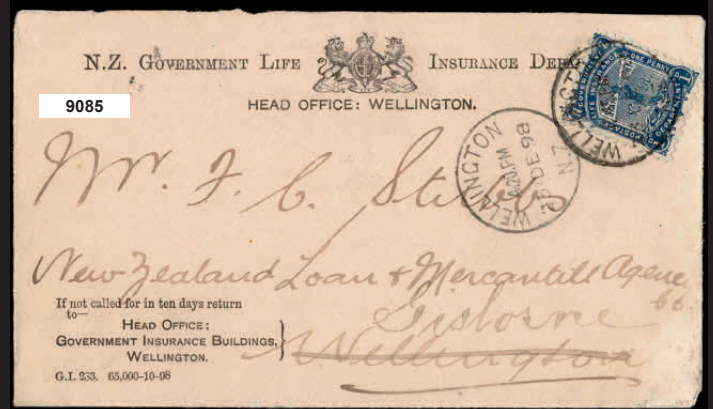 N.Z. GOVERNMENT LIFE INSURANCE
HEAD OFFICE: WELLINGTON.
9085
WELLINGTON N.Z
DE 98
WELLINGTON
LIFE INSURANCE
ONE PENNY
Mr. F. C. Stubbs
New Zealand Loan & Mercantile Agency
Co.
Gisborne
Wellington
If not called for in ten days return
to—
HEAD OFFICE:
GOVERNMENT INSURANCE BUILDINGS,
WELLINGTON.
G.I. 233. 65,000-10-98